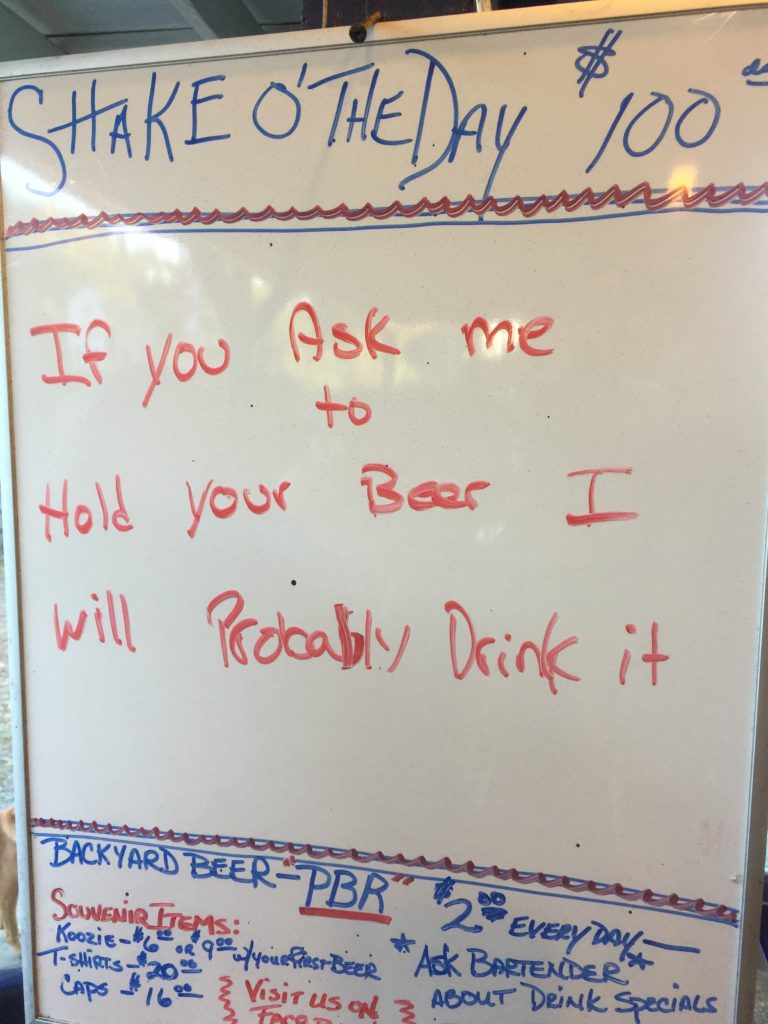 SHAKE O' THE DAY $100
If you Ask me
to
Hold your Beer I
will Probably Drink it
BACKYARD BEER - "PBR" $2.00 EVERYDAY —
SOUVENIR ITEMS:
KOOZIE - $6.00 OR $9.00 w/YOUR FIRST BEER
T-SHIRTS - $20.00
CAPS - $16.00
VISIT US ON
*ASK BARTENDER*
ABOUT DRINK SPECIALS